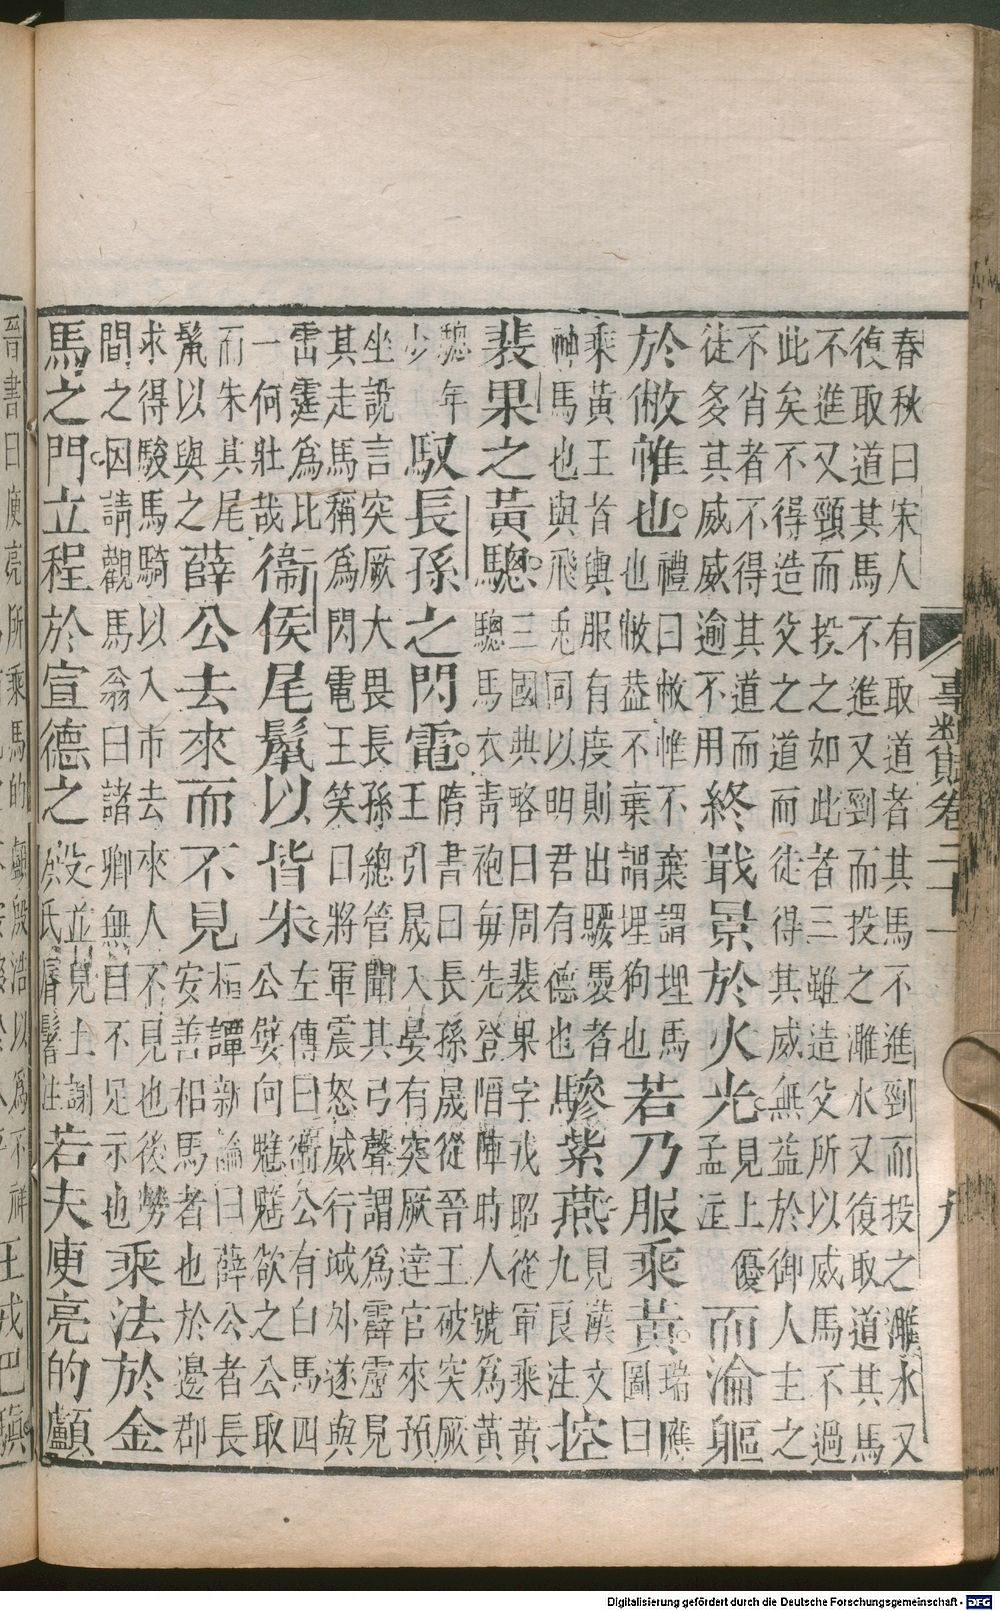 事類賦卷二十一 九
春秋曰宋人有取道者其馬不進剄而投之㶉水又
復取道其馬不進又剄而投之㶉水又復取道其馬
不進又頸而投之如此者三雖造父所以威馬不過
此矣不得造父之道而徒得其威無益於御人主之
不肖者不得其道而
徒多其威威逾不用
終戢景於火光
見上優
孟注
而淪軀
於敝帷也
禮曰敝帷不棄謂埋馬
也敝葢不棄謂埋狗也
若乃服乘黃
瑞應
圖曰
乘黃王者輿服有度則出騕褭者
神馬也與飛兎同以明君有德也
驂紫燕
見漢文
九良注
控
裴果之黃驄
三國典略曰周裴果字戎昭從軍乘黃
驄馬衣青袍每先登陷陣時人號爲黃
驄年
少
馭長孫之閃電
隋書曰長孫晟從晉王破突厥
王引晟入宴有突厥達官來預
坐說言突厥大畏長孫總管聞其弓聲謂爲霹靂見
其走馬稱爲閃電王笑曰將軍震怒威行域外遂與
雷霆爲比
一何壯哉
衞侯尾鬛以皆朱
左傳曰衞公有白馬四
公嬖向魋魋欲之公取
而朱其尾
鬛以與之
薛公去來而不見
桓譚新論曰薛公者長
安善相馬者也於邊郡
求得駿馬騎以入市去來人不見也後勞
間之因請觀馬翁曰諸卿無目不足示也
乘法於金
馬之門立程於宣德之
没並見上謝
氏脣鬐注
若夫庾亮的顱
晉書曰庾亮所乘馬的顱殷浩以爲不祥
王戎巴滇
Digitalisierung gefördert durch die Deutsche Forschungsgemeinschaft - DFG